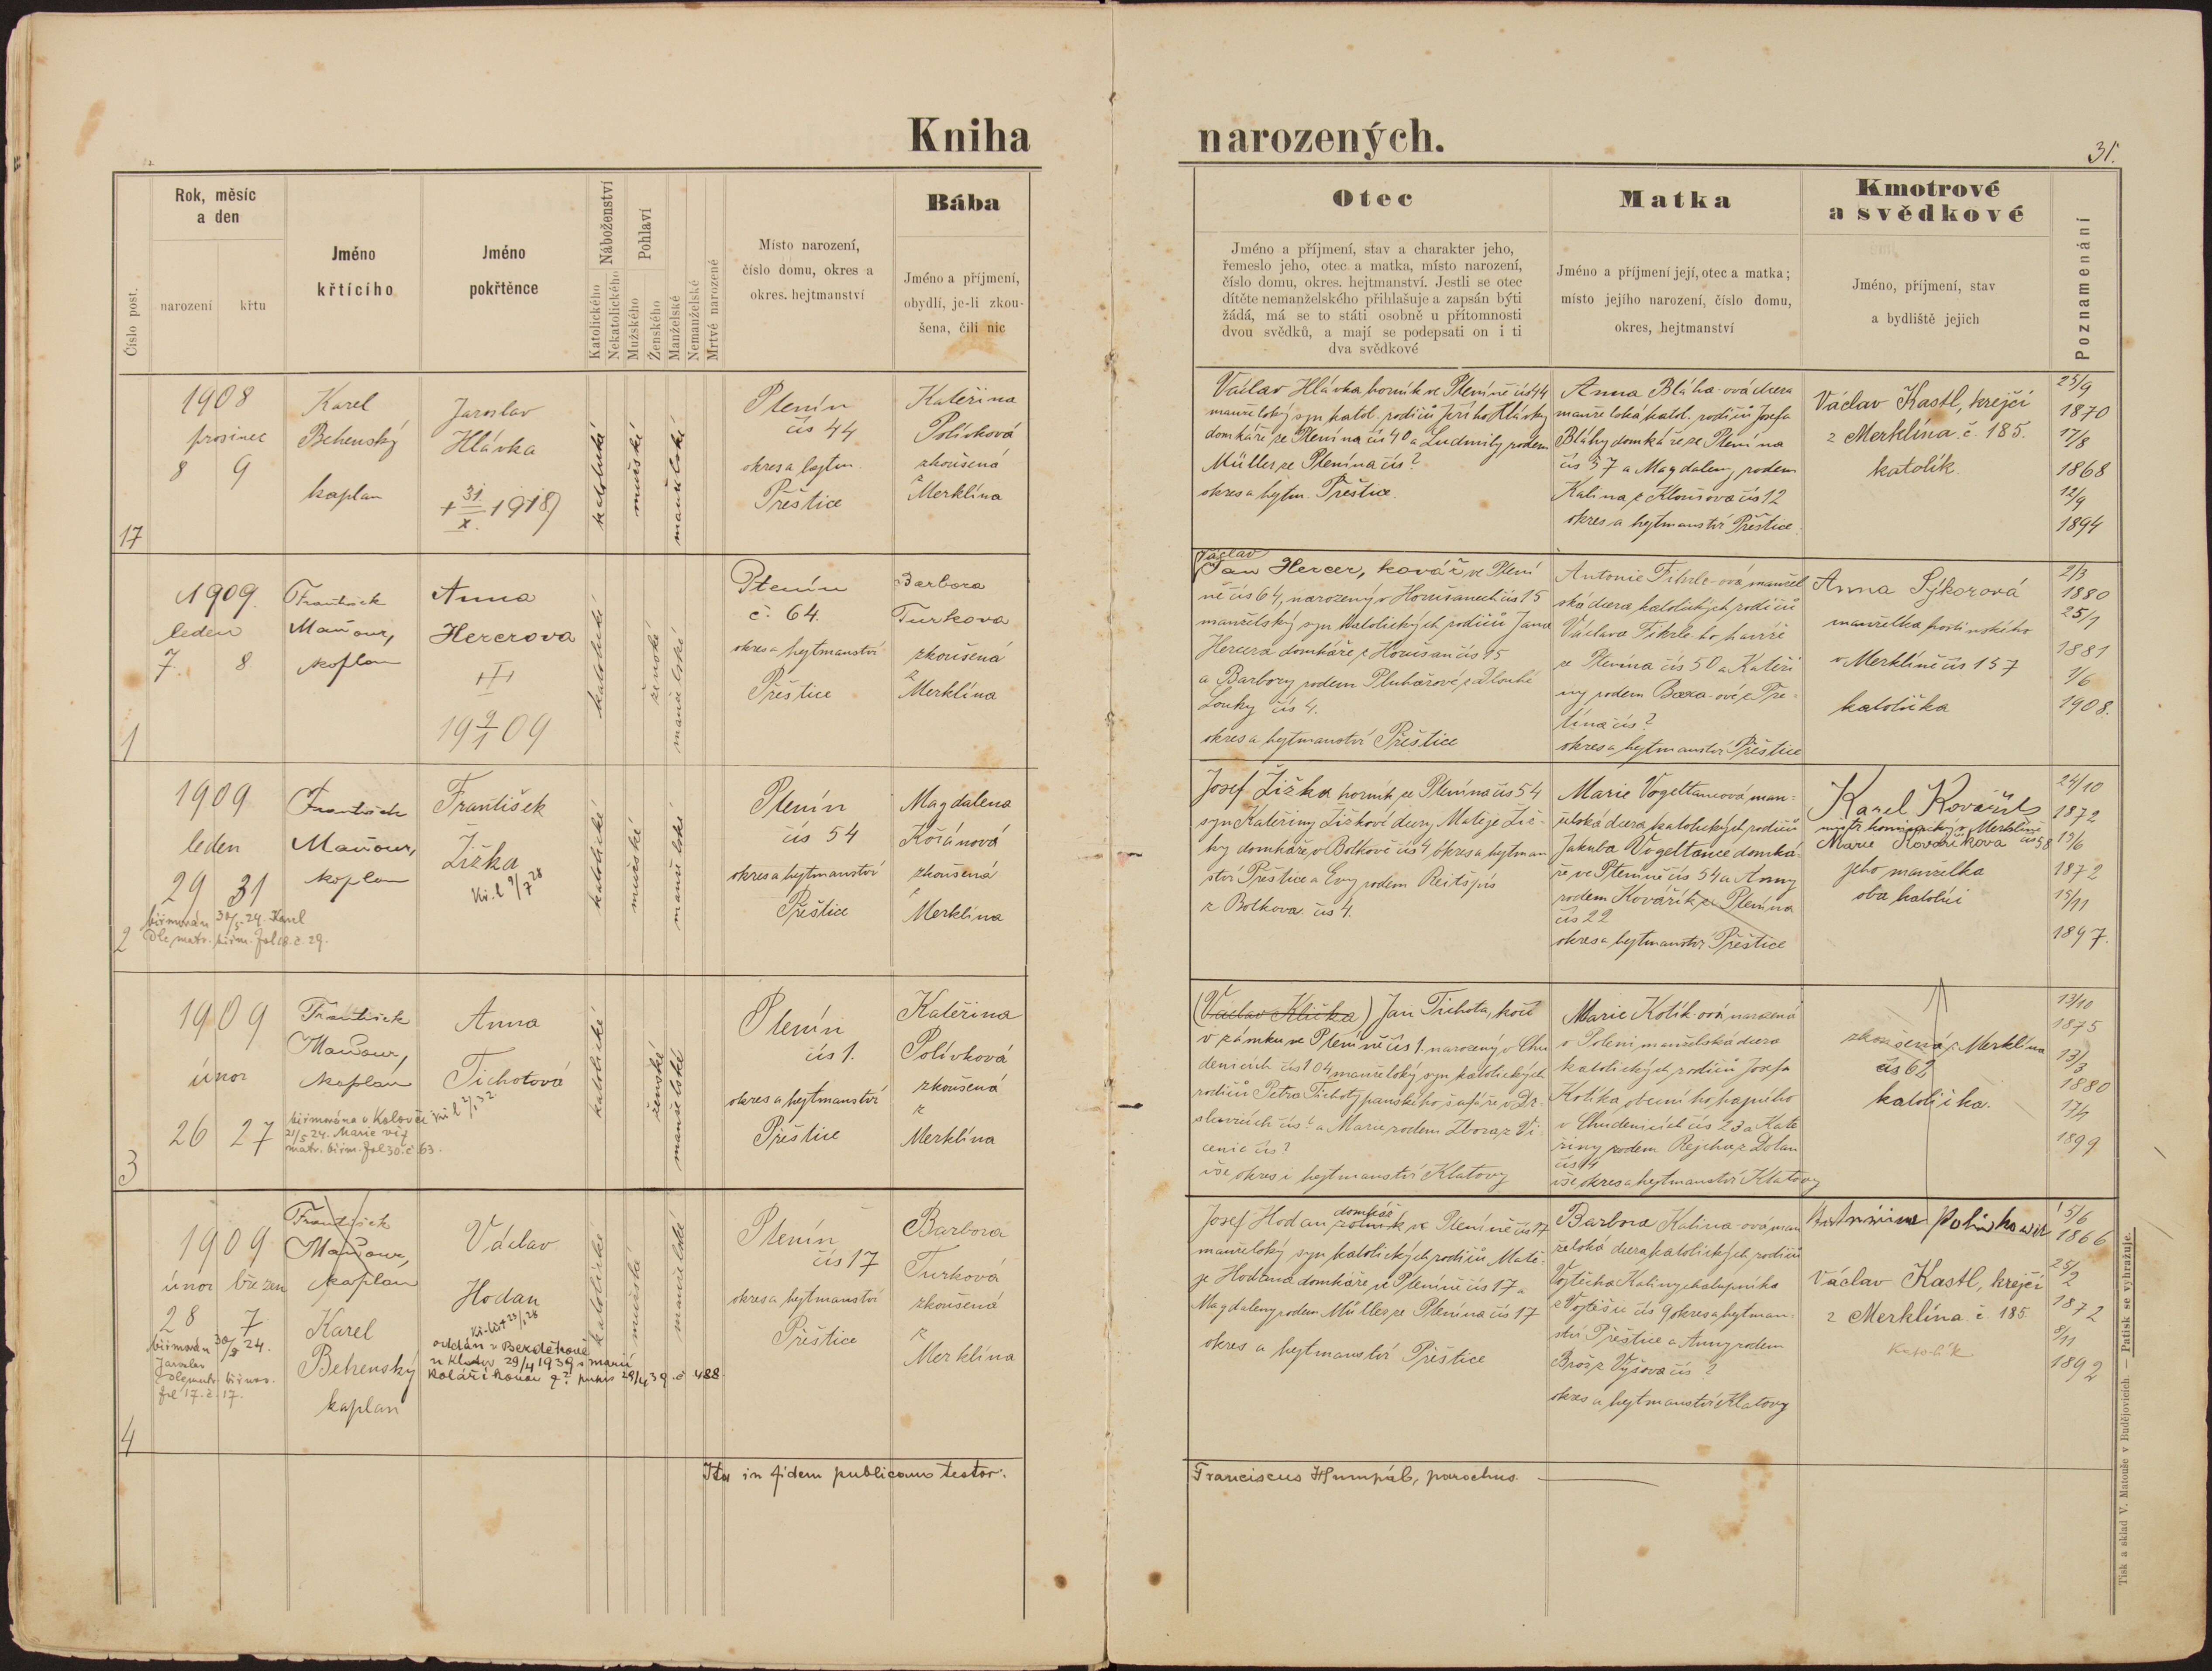 Kniha narozených.
31.
Číslo post.
Rok, měsíc
a den
narození
křtu
Jméno
křtícího
Jméno
pokřtěnce
Náboženství
Katolického
Nekatolického
Pohlaví
Mužského
Ženského
Manželské
Nemanželské
Mrtvé narozené
Místo narození,
číslo domu, okres a
okres. hejtmanství
Bába
Jméno a příjmení,
obydlí, je-li zkou-
šena, čili nic
Otec
Jméno a příjmení, stav a charakter jeho,
řemeslo jeho, otec a matka, místo narození,
číslo domu, okres. hejtmanství. Jestli se otec
dítěte nemanželského přihlašuje a zapsán býti
žádá, má se to státi osobně u přítomnosti
dvou svědků, a mají se podepsati on i ti
dva svědkové
Matka
Jméno a příjmení její, otec a matka;
místo jejího narození, číslo domu,
okres, hejtmanství
Kmotrové
a svědkové
Jméno, příjmení, stav
a bydliště jejich
Poznamenání
17
1908
prosinec
8 9
Karel
Behenský
kaplan
Jaroslav
Hlávka
+ 31/X. 1918
katolické
mužské
manželské
Ptenín
čís 44
okres a hejtm.
Přeštice
Kateřina
Polívková
zkoušená
z Merklína
Václav Hlávka horník ve Pteníně čís 44
manželský syn katol. rodičů Jiřího Hlávky
domkáře ze Ptenína čís 40 a Ludmily rodem
Müller ze Ptenína čís?
okres a hejtm. Přeštice.
Anna Bláha-ová dcera
manželská katol. rodičů Josefa
Bláhy domkáře ze Ptenína
čís 37 a Magdaleny rodem
Kalina z Kloušova čís 12
okres a hejtmanství Přeštice.
Václav Kastl, krejčí
z Merklína č. 185.
katolík
25/9
1870
17/8
1868
12/9
1894
1
1909
leden
7. 8.
František
Maňour,
kaplan
Anna
Hercrova
19 9/1 09
katolické
ženské
manželské
Ptenín
č. 64.
okres a hejtmanství
Přeštice
Barbora
Turkova
zkoušená
z
Merklína
Václav
Jan Hercer, kovář ve Ptení
ně čís 64, narozený v Horušanech čís 15
manželský syn katolických rodičů Jana
Hercera domkáře z Horušan čís 15
a Barbory rodem Pluhařové, z Dlouhé
Louky čís 4.
okres a hejtmanství Přeštice
Antonie Fikrle-ová manžel
ská dcera katolických rodičů
Václava Fikrle-ho, havíře
ze Ptenína čís 50 a Kateři
ny rodem Baxa-ové z Pře-
tína čís?
okres a hejtmanství Přeštice
Anna Sýkorová
manželka hostinského
v Merklíně čís 157
katolička
2/3
1880
25/1
1881
1/6
1908.
2
1909
leden
29 31
biřmován 30/5. 24. Karel
Dle matr. biřm. fol 18. č. 29.
František
Maňour,
kaplan
František
Žižka
Kř. l 9/7 28
katolické
mužské
manželské
Ptenín
čís 54
okres a hejtmanství
Přeštice
Magdalena
Kořánová
zkoušená
z
Merklína
Josef Žižka horník ze Ptenína čís 54
syn Kateřiny Žižkové dcery Matěje Žiž-
ky domkáře v Bolkově čís 4, okres a hejtman
ství Přeštice a Evy rodem Reitšpís
z Bolkova čís 4.
Marie Vogeltanzová man-
želská dcera katolických rodičů
Jakuba Vogeltance domká-
ře ve Pteníně čís 54 a Anny
rodem Kovářík ze Ptenína
čís 22
okres a hejtmanství Přeštice
Karel Kovářík
mistr kominický z Merklína
Marie Kovaříkova čís 58
jeho manželka
oba katolíci
24/10
1872
13/6
1872
15/11
1897.
3
1909
únor
26 27
František
Maňour,
kaplan
biřmována v Kolovči
21/5 24. Marie viz
matr. biřm. fol 30. č. 63.
Anna
Tichotová
katolické
ženské
manželské
Ptenín
čís 1.
okres a hejtmanství
Přeštice
Kateřina
Polívková
zkoušená
z
Merklína
(Václav Klička) Jan Tichota, kočí
v zámku ve Pteníně čís 1. narozený v Chu
denicích čís 104, manželský syn katolických
rodičů Petra Tichoty panského šafáře v Dr-
slavicích čís? a Marie rodem Zbora z Vi-
cenic čís?
vše okres i hejtmanství Klatovy
Marie Kotík-ová narozená
v Poleni manželská dcera
katolických rodičů Josefa
Kotíka obecního hajného
v Chudenicích čís 23 a Kate
řiny rodem Rejcha z Dolan
čís 14
vše okres a hejtmanství Klatovy
zkoušená z Merklína
čís 62
katolička.
13/10
1875
13/3
1880
17/4
1899
4
1909
únor březen
28 7
biřmován 30/5 24.
Jaroslav
Dle matr. biřmov.
fol 17. č. 17.
František
Maňour,
kaplan
Karel
Behenský
kaplan
Václav
Hodan
Kř. list 23/1 28
oddán v
u Kladna 29/4 1939 s Marií
katolické
mužské
manželské
Ptenín
čís 17
okres a hejtmanství
Přeštice
Barbora
Turková
zkoušená
z
Merklína
domkář
Josef Hodan rolník ve Pteníně čís 17
manželský syn katolických rodičů Matě-
je Hodana domkáře ve Pteníně čís 17 a
Magdaleny rodem Müller ze Ptenína čís 17
okres a hejtmanství Přeštice
Barbora Kalina-ová man
želská dcera katolických rodičů
Vojtěcha Kaliny chalupníka
z Vojtěšic čís 9 okres a hejtman-
ství Přeštice a Anny rodem
Brož z Výšova čís?
okres a hejtmanství Klatovy
Václav Kastl, krejčí
z Merklína č. 185.
Katolík
15/6
1866
25/2
1872
8/11
1892
Ita in fidem publicam testor:
Franciscus Humpál, parochus.
Tisk a sklad V. Matouše v Budějovicích. — Patisk se vyhražuje.